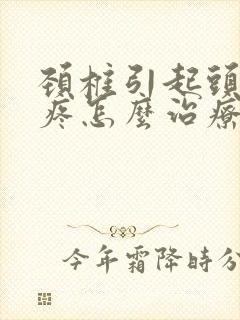 頚椎引起頭
疼怎麼治療
今年霜降時分